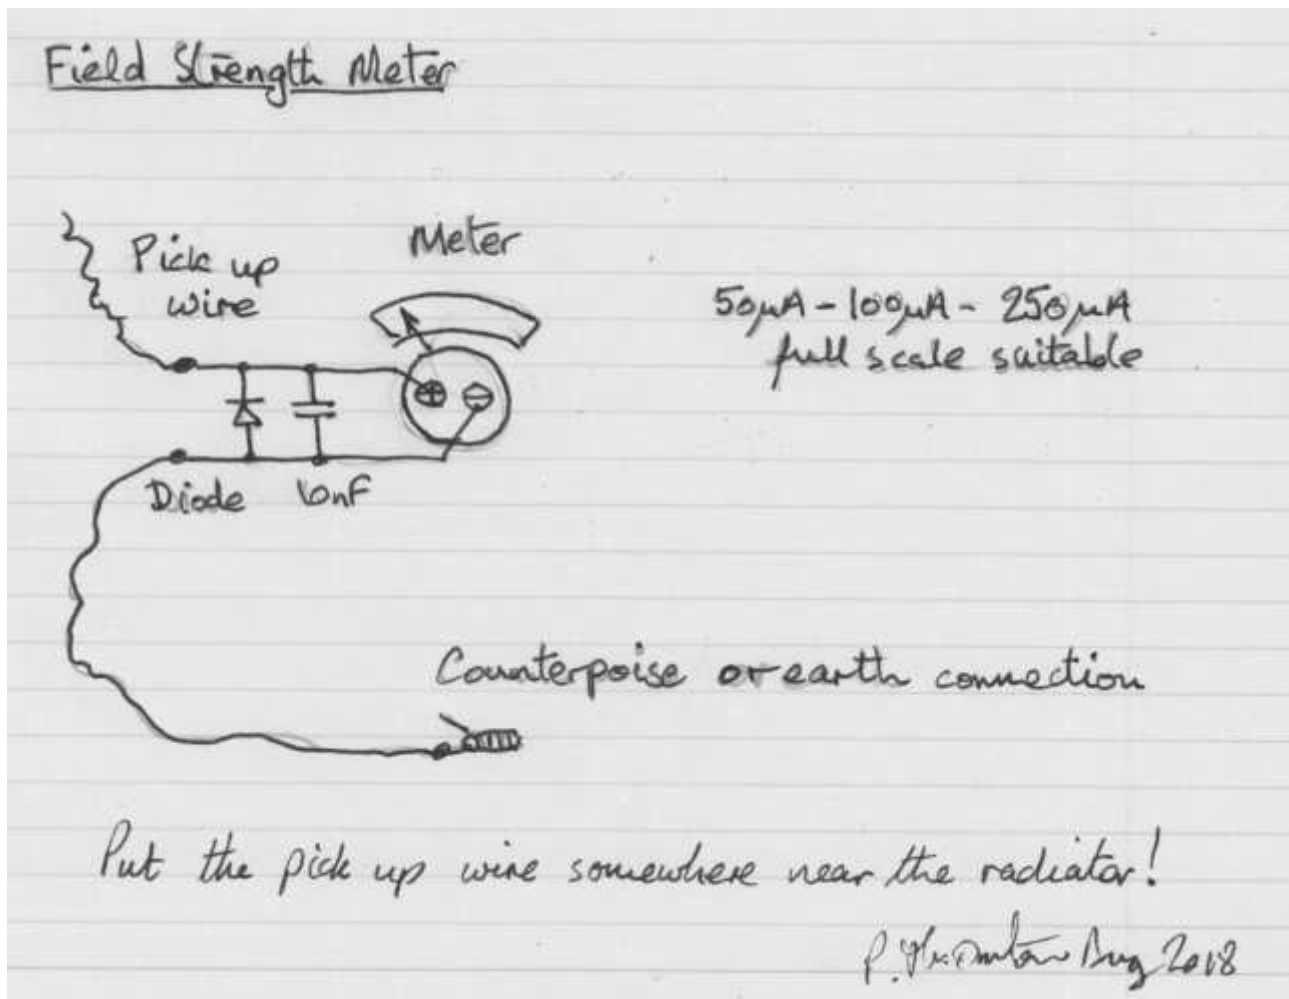 Field Strength Meter
Pick up
wire
Meter
50µA - 100µA - 250µA
full scale suitable
Diode 10nF
Counterpoise or earth connection
Put the pick up wire somewhere near the radiator!
P. Aug 2018